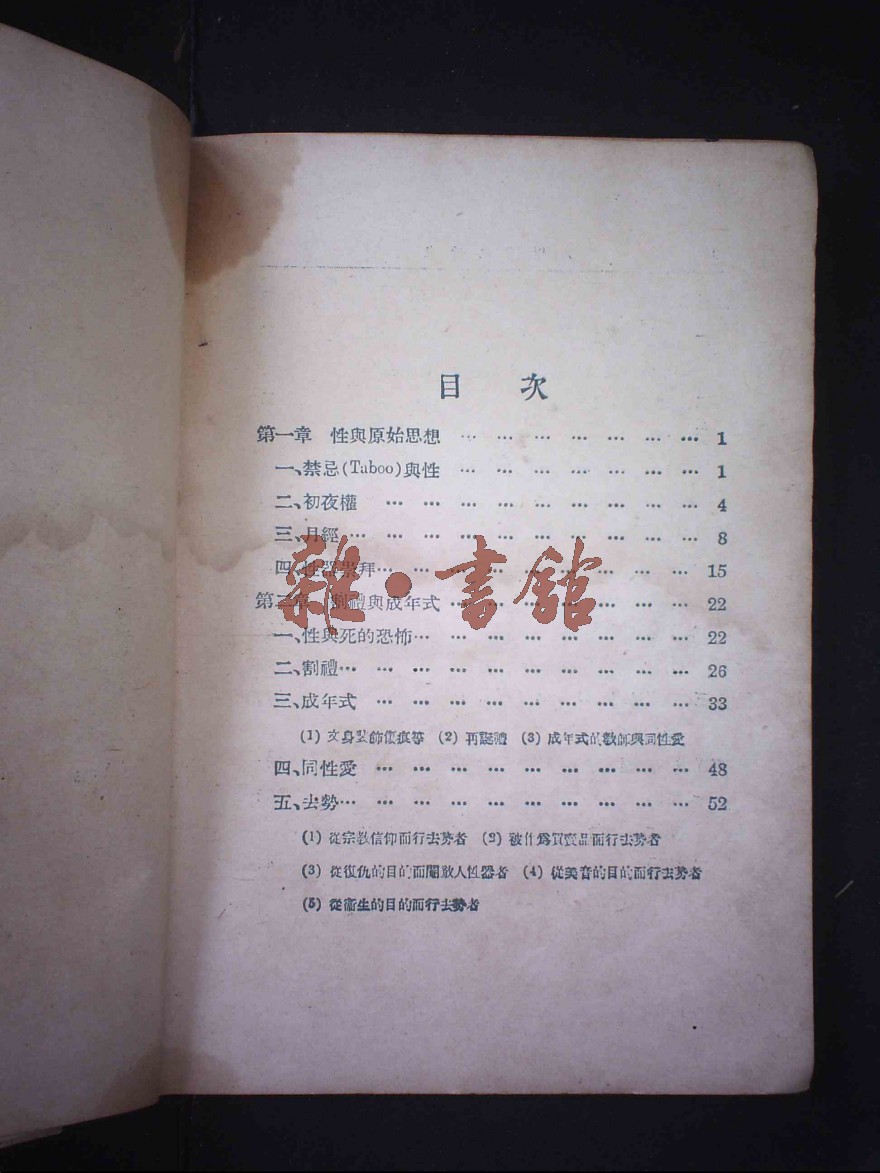 目 次
第一章 性與原始思想 … … … … … … … 1
一、禁忌(Taboo)與性 … … … … … … … 1
二、初夜權 … … … … … … … … … 4
三、月經 … … … … … … … … … … 8
四、性器崇拜 … … … … … … … … … 15
第二章 割禮與成年式 … … … … … … … 22
一、性與死的恐怖 … … … … … … … 22
二、割禮 … … … … … … … … … … 26
三、成年式 … … … … … … … … … 33
(1) 文身裝飾傷痕等 (2) 再誕禮 (3) 成年式的教師與同性愛
四、同性愛 … … … … … … … … … 48
五、去勢 … … … … … … … … … … 52
(1) 從宗教信仰而行去勢者 (2) 被作爲買賣品而行去勢者
(3) 從復仇的目的而閹敵人性器者 (4) 從美音的目的而行去勢者
(5) 從衞生的目的而行去勢者
雜·書館